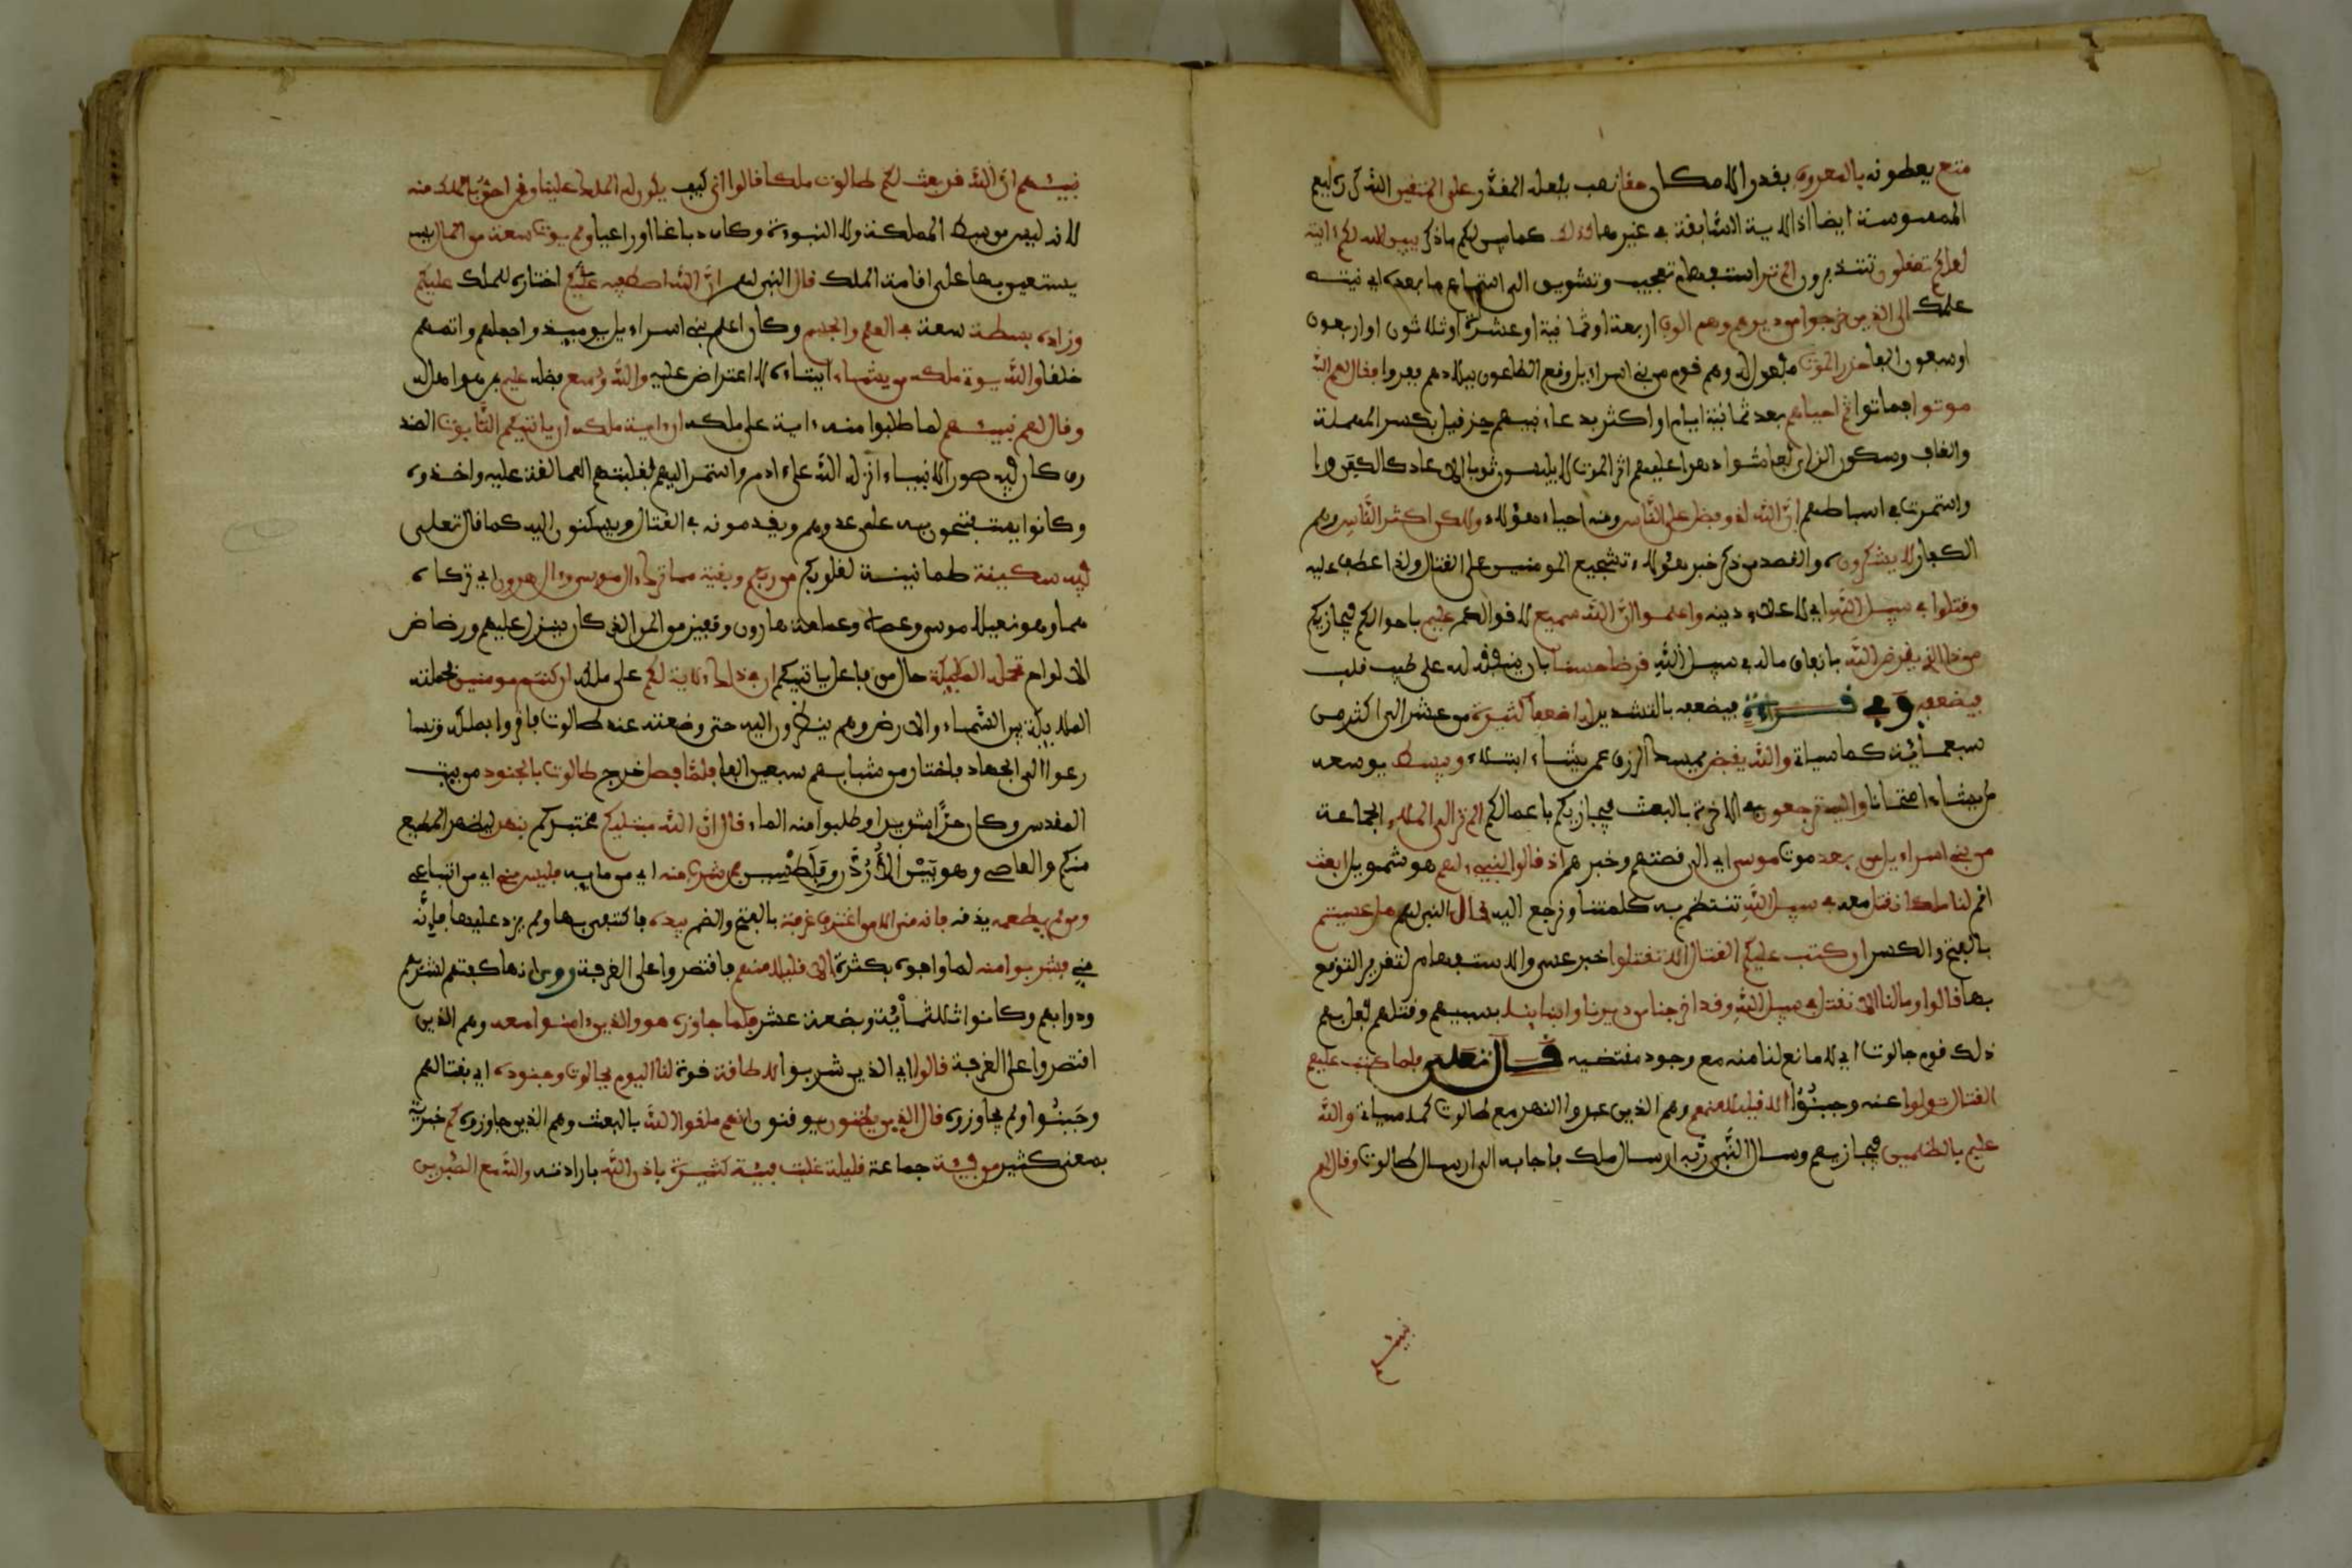 متع يعطونه بالمعروف بقدر الامكان حقا نصب بفعله المقدر على المتقين الله كرره ليعم
الممسوسة ايضا اذ الاية السابقة في غيرها كذلك كما يبين لكم ما ذكر يبين الله لكم ءايته
لعلكم تعقلون تتدبرون الم تر استفهام تعجيب وتشويق الى استماع ما بعده اي ينته
علمك الى الذين خرجوا من ديرهم وهم الوف اربعة او ثمانية او عشرة او ثلاثون او اربعون
او سبعون الفا حذر الموت مفعول له وهم قوم من بني اسراءيل وقع الطاعون ببلادهم ففروا فقال لهم الله
موتوا فماتوا ثم احياهم بعد ثمانية ايام او اكثر بدعاء نبيهم حزقيل بكسر المهملة
والقاف وسكون الزاي فعاشوا دهرا عليهم اثر الموت لا يلبسون ثوبا الا عاد كالكفن
واستمرت في اسباطهم ان الله لذو فضل على الناس ومنه احياء هؤلاء ولكن اكثر الناس وهم
الكفار لا يشكرون والقصد من ذكر خبر هؤلاء تشجيع المومنين على القتال ولذا عطف عليه
وقتلوا في سبيل الله اي لاعلاء دينه واعلموا ان الله سميع لاقوالكم عليم باحوالكم فيجازيكم
من ذا الذي يقرض الله بانفاق ماله في سبيل الله قرضا حسنا بان ينفقه له على طيب قلب
فيضعفه وفي قراءة فيضعفه بالتشديد له اضعافا كثيرة من عشر الى اكثر من
سبعمائة كما سياتي والله يقبض يمسك الرزق عمن يشاء ابتلاء ويبسط يوسعه
لمن يشاء امتحانا واليه ترجعون في الاخرة بالبعث فيجازيكم باعمالكم الم تر الى الملا الجماعة
من بني اسراءيل من بعد موت موسى اي الى قصتهم وخبرهم اذ قالوا لنبيء لهم هو شمويل ابعث
اقم لنا ملكا نقتل معه في سبيل الله تنتظم به كلمتنا ونرجع اليه قال النبي لهم هل عسيتم
بالفتح والكسر ان كتب عليكم القتال الا تقتلوا خبر عسى والاستفهام لتقرير التوقع
بها قالوا وما لنا الا نقتل في سبيل الله وقد اخرجنا من ديرنا وابنائنا بسبيهم وقتلهم فعل بهم
ذلك قوم جالوت اي لا مانع لنا منه مع وجود مقتضيه قال تعلى فلما كتب عليهم
القتال تولوا عنه وجبنوا الا قليلا منهم وهم الذين عبروا النهر مع طالوت كما سياتي والله
عليم بالظلمين فيجازيهم وسال النبي ربه ارسال ملك فاجابه الى ارسال طالوت وقال لهم
نبيئهم
نبيئهم ان الله قد بعث لكم طالوت ملكا قالوا انى كيف يكون له الملك علينا ونحن احق بالملك منه
لانه ليس من سبط المملكة ولا النبوءة وكان دباغا او راعيا ولم يوت سعة من المال
يستعين بها على اقامة الملك قال النبي لهم ان الله اصطفيه عليكم اختاره للملك عليكم
وزاده بسطة سعة في العلم والجسم وكان اعلم بني اسراءيل يوميذ واجملهم واتمهم
خلقا والله يوتي ملكه من يشاء ايتاءه لا اعتراض عليه والله وسع فضله عليم بمن هو اهل له
وقال لهم نبيئهم لما طلبوا منه ءاية على ملكه ان ءاية ملكه ان ياتيكم التابوت الصند
وق كان فيه صور الانبياء انزله الله على ءادم واستمر اليهم فغلبتهم العمالقة عليه واخذوه
وكانوا يستفتحون به على عدوهم ويقدمونه في القتال ويسكنون اليه كما قال تعلى
فيه سكينة طمانينة لقلوبكم من ربكم وبقية مما ترك ءال موسى وءال هرون اي تركاه
هما وهو نعلا موسى وعصاه وعمامة هارون وقفيز من المن الذي كان ينزل عليهم ورضاض
الالواح تحمله المليكة حال من فاعل ياتيكم ان في ذلك لاية لكم على ملكه ان كنتم مومنين فحملته
المليكة بين السماء والارض وهم ينظرون اليه حتى وضعته عند طالوت فاقروا بملكه وتسا
رعوا الى الجهاد فاختار من شبابهم سبعين الفا فلما فصل خرج طالوت بالجنود من بيت
المقدس وكان حرا شديدا وطلبوا منه الماء قال ان الله مبتليكم مختبركم بنهر ليظهر المطيع
منكم والعاصي وهو بين الاردن وفلسطين فمن شرب منه اي من مايه فليس مني اي من اتباعي
ومن لم يطعمه يذقه فانه مني الا من اغترف غرفة بالفتح والضم بيده فاكتفى بها ولم يزد عليها فانه
مني فشربوا منه لما وافوه بكثرة الا قليلا منهم فاقتصروا على الغرفة روي انها كفتهم لشربهم
ودوابهم وكانوا ثلاثمائة وبضعة عشر فلما جاوزه هو والذين ءامنوا معه وهم الذين
اقتصروا على الغرفة قالوا اي الذين شربوا لا طاقة قوة لنا اليوم بجالوت وجنوده اي بقتالهم
وجبنوا ولم يجاوزوه قال الذين يظنون يوقنون انهم ملقوا الله بالبعث وهم الذين جاوزوه كم خبرية
بمعنى كثير من فيئة جماعة قليلة غلبت فيئة كثيرة باذن الله بارادته والله مع الصبرين